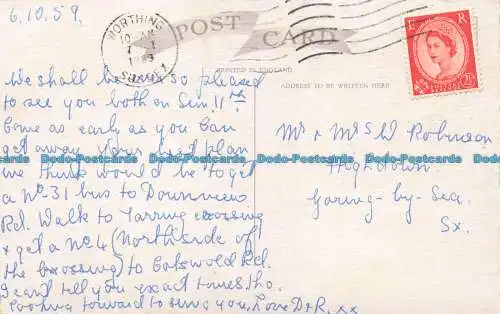 6.10.59.
WORTHING
SUSSEX
POST CARD
PRINTED IN ENGLAND
ADDRESS TO BE WRITTEN HERE
E R
2½
We shall be so pleased
to see you both on Sun. 11th.
Come as early as you can
get away. Your best plan
we think would be to get
a No-31 bus to Downview
Rd. Walk to Tarring crossing
& get a No. 4 (North side of
the crossing) to Cotswold Rd.
I cant tell you exact times tho.
Looking forward to seeing you, Love D & R. xx
Mr & Mrs S W Robinson
Highdown
Goring-by-Sea.
Sx.
Dodo-Postcards Dodo-Postcards Dodo-Postcards Dodo-Postcards